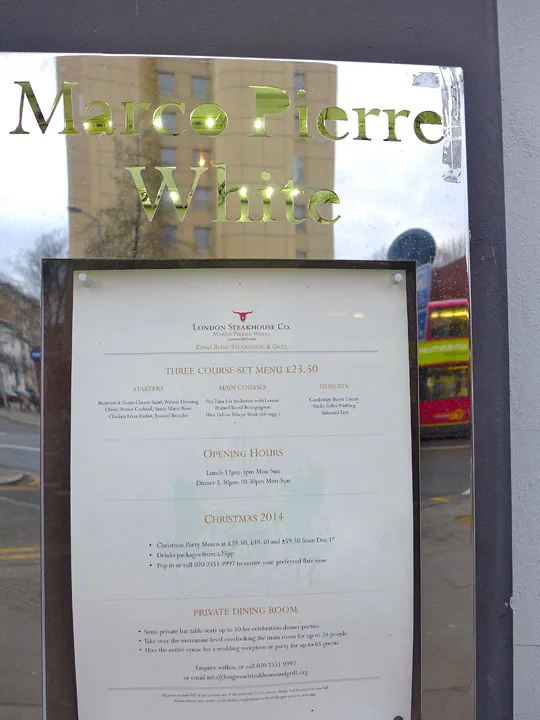 Marco Pierre
White
LONDON STEAKHOUSE CO.
MARCO PIERRE WHITE
KINGS ROAD STEAKHOUSE & GRILL
THREE COURSE SET MENU £23.50
STARTERS
Beetroot & Goats Cheese Salad, Walnut Dressing
Classic Prawn Cocktail, Sauce Marie Rose
Chicken Liver Parfait, Toasted Brioche
MAIN COURSES
with Lemon
Braised Bourguignon
Ribeye Steak
DESSERTS
Cambridge Burnt Cream
Sticky Toffee Pudding
Bakewell Tart
OPENING HOURS
Lunch 12pm-3pm Mon-Sun
Dinner 5.30pm-10.30pm Mon-Sun
CHRISTMAS 2014
• Christmas Party Menus at £39.50, £49.50 and £59.50 from Dec 1st
• Drinks packages from £25pp
• Pop in or call 020 7351 9997 to secure your preferred date now
PRIVATE DINING ROOM
• Semi-private bar table seats up to 10 for celebration dinner parties
• Take over the mezzanine level overlooking the main room for up to 24 people
• Hire the entire venue for a wedding reception or party for up to 65 guests
Enquire within, or call 020 7351 9997
or email info@kingsroadsteakhouseandgrill.org